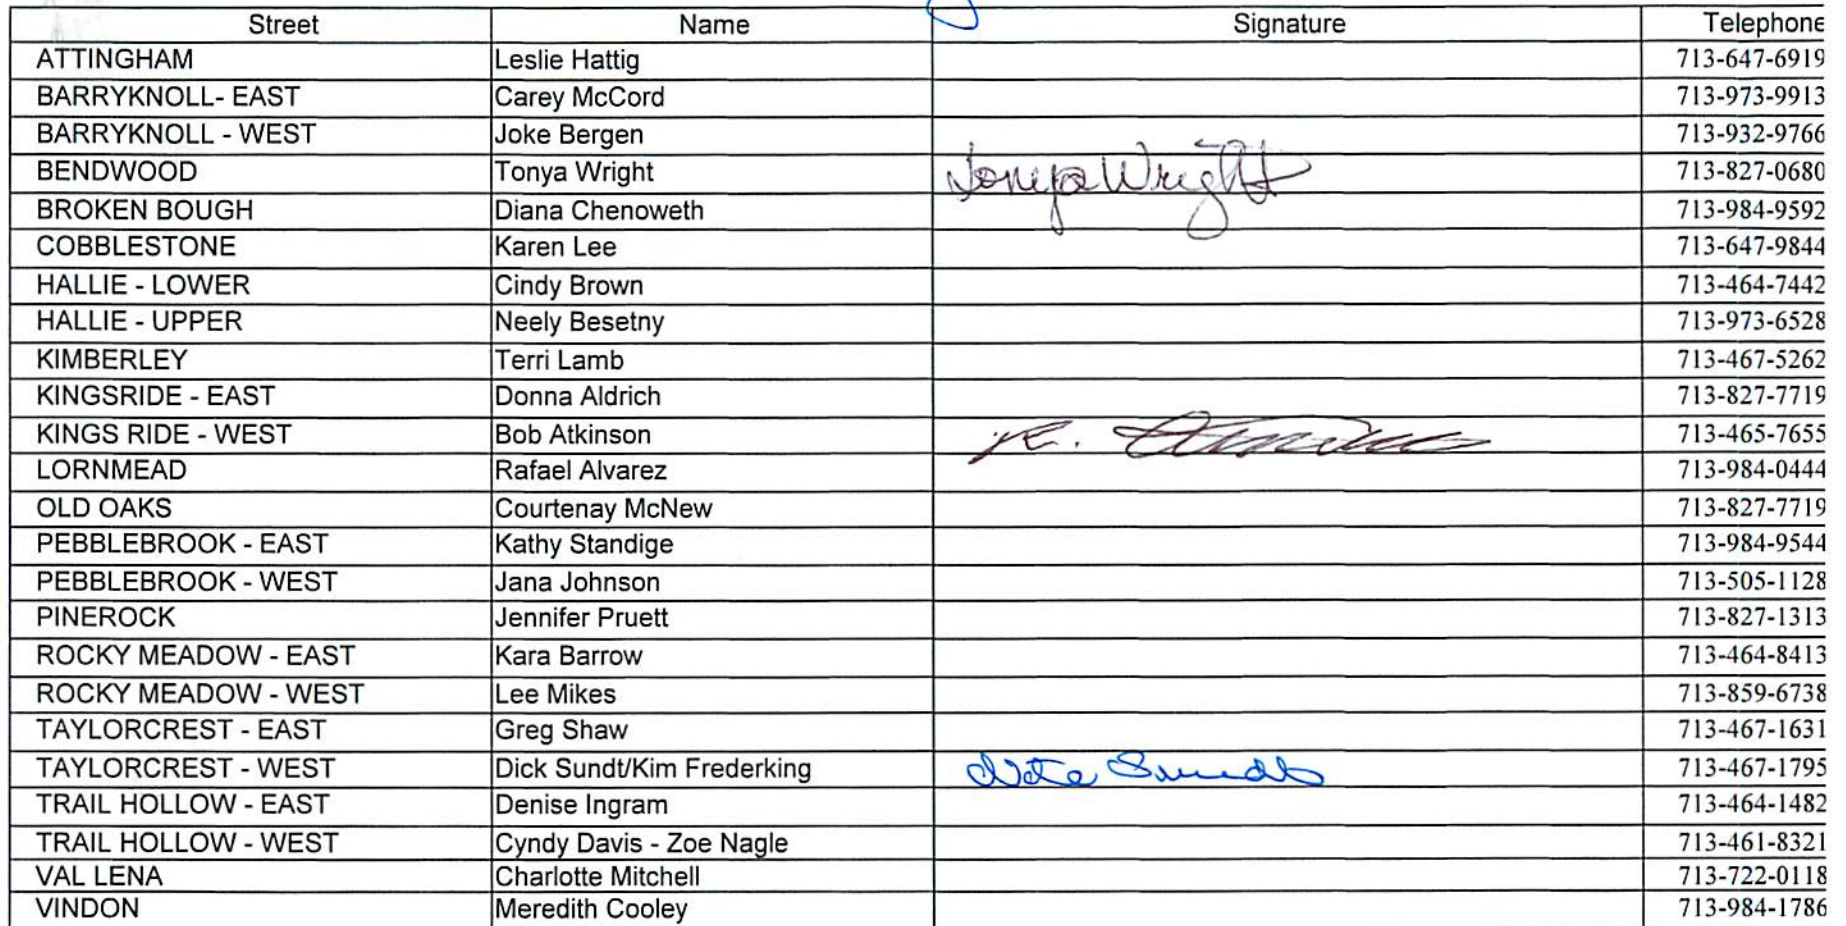 Street Name Signature Telephone
ATTINGHAM Leslie Hattig 713-647-6919
BARRYKNOLL- EAST Carey McCord 713-973-9913
BARRYKNOLL - WEST Joke Bergen 713-932-9766
BENDWOOD Tonya Wright Tonya Wright 713-827-0680
BROKEN BOUGH Diana Chenoweth 713-984-9592
COBBLESTONE Karen Lee 713-647-9844
HALLIE - LOWER Cindy Brown 713-464-7442
HALLIE - UPPER Neely Besetny 713-973-6528
KIMBERLEY Terri Lamb 713-467-5262
KINGSRIDE - EAST Donna Aldrich 713-827-7719
KINGS RIDE - WEST Bob Atkinson 713-465-7655
LORNMEAD Rafael Alvarez 713-984-0444
OLD OAKS Courtenay McNew 713-827-7719
PEBBLEBROOK - EAST Kathy Standige 713-984-9544
PEBBLEBROOK - WEST Jana Johnson 713-505-1128
PINEROCK Jennifer Pruett 713-827-1313
ROCKY MEADOW - EAST Kara Barrow 713-464-8413
ROCKY MEADOW - WEST Lee Mikes 713-859-6738
TAYLORCREST - EAST Greg Shaw 713-467-1631
TAYLORCREST - WEST Dick Sundt/Kim Frederking 713-467-1795
TRAIL HOLLOW - EAST Denise Ingram 713-464-1482
TRAIL HOLLOW - WEST Cyndy Davis - Zoe Nagle 713-461-8321
VAL LENA Charlotte Mitchell 713-722-0118
VINDON Meredith Cooley 713-984-1786